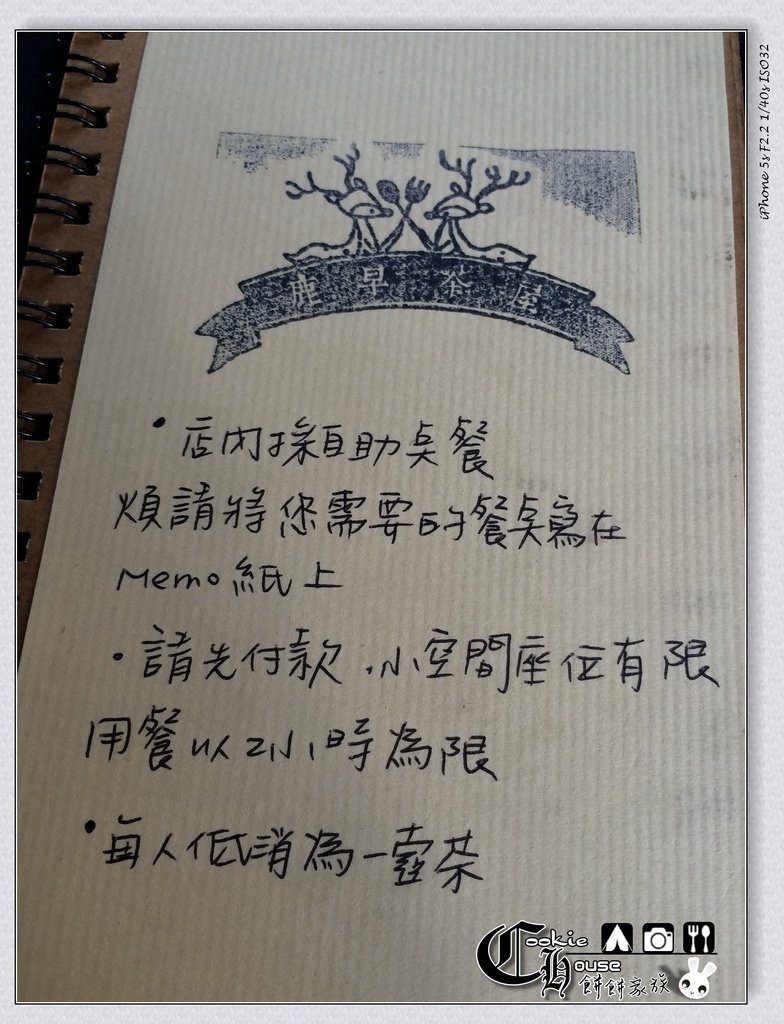 iPhone 5s F2.2 1/40s ISO32
鹿早茶屋
•店內採自助點餐
煩請將您需要的餐點寫在
Memo紙上
•請先付款.小空間座位有限
用餐以2小時為限
•每人低消為一壺茶
Cookie
House
餅餅家族